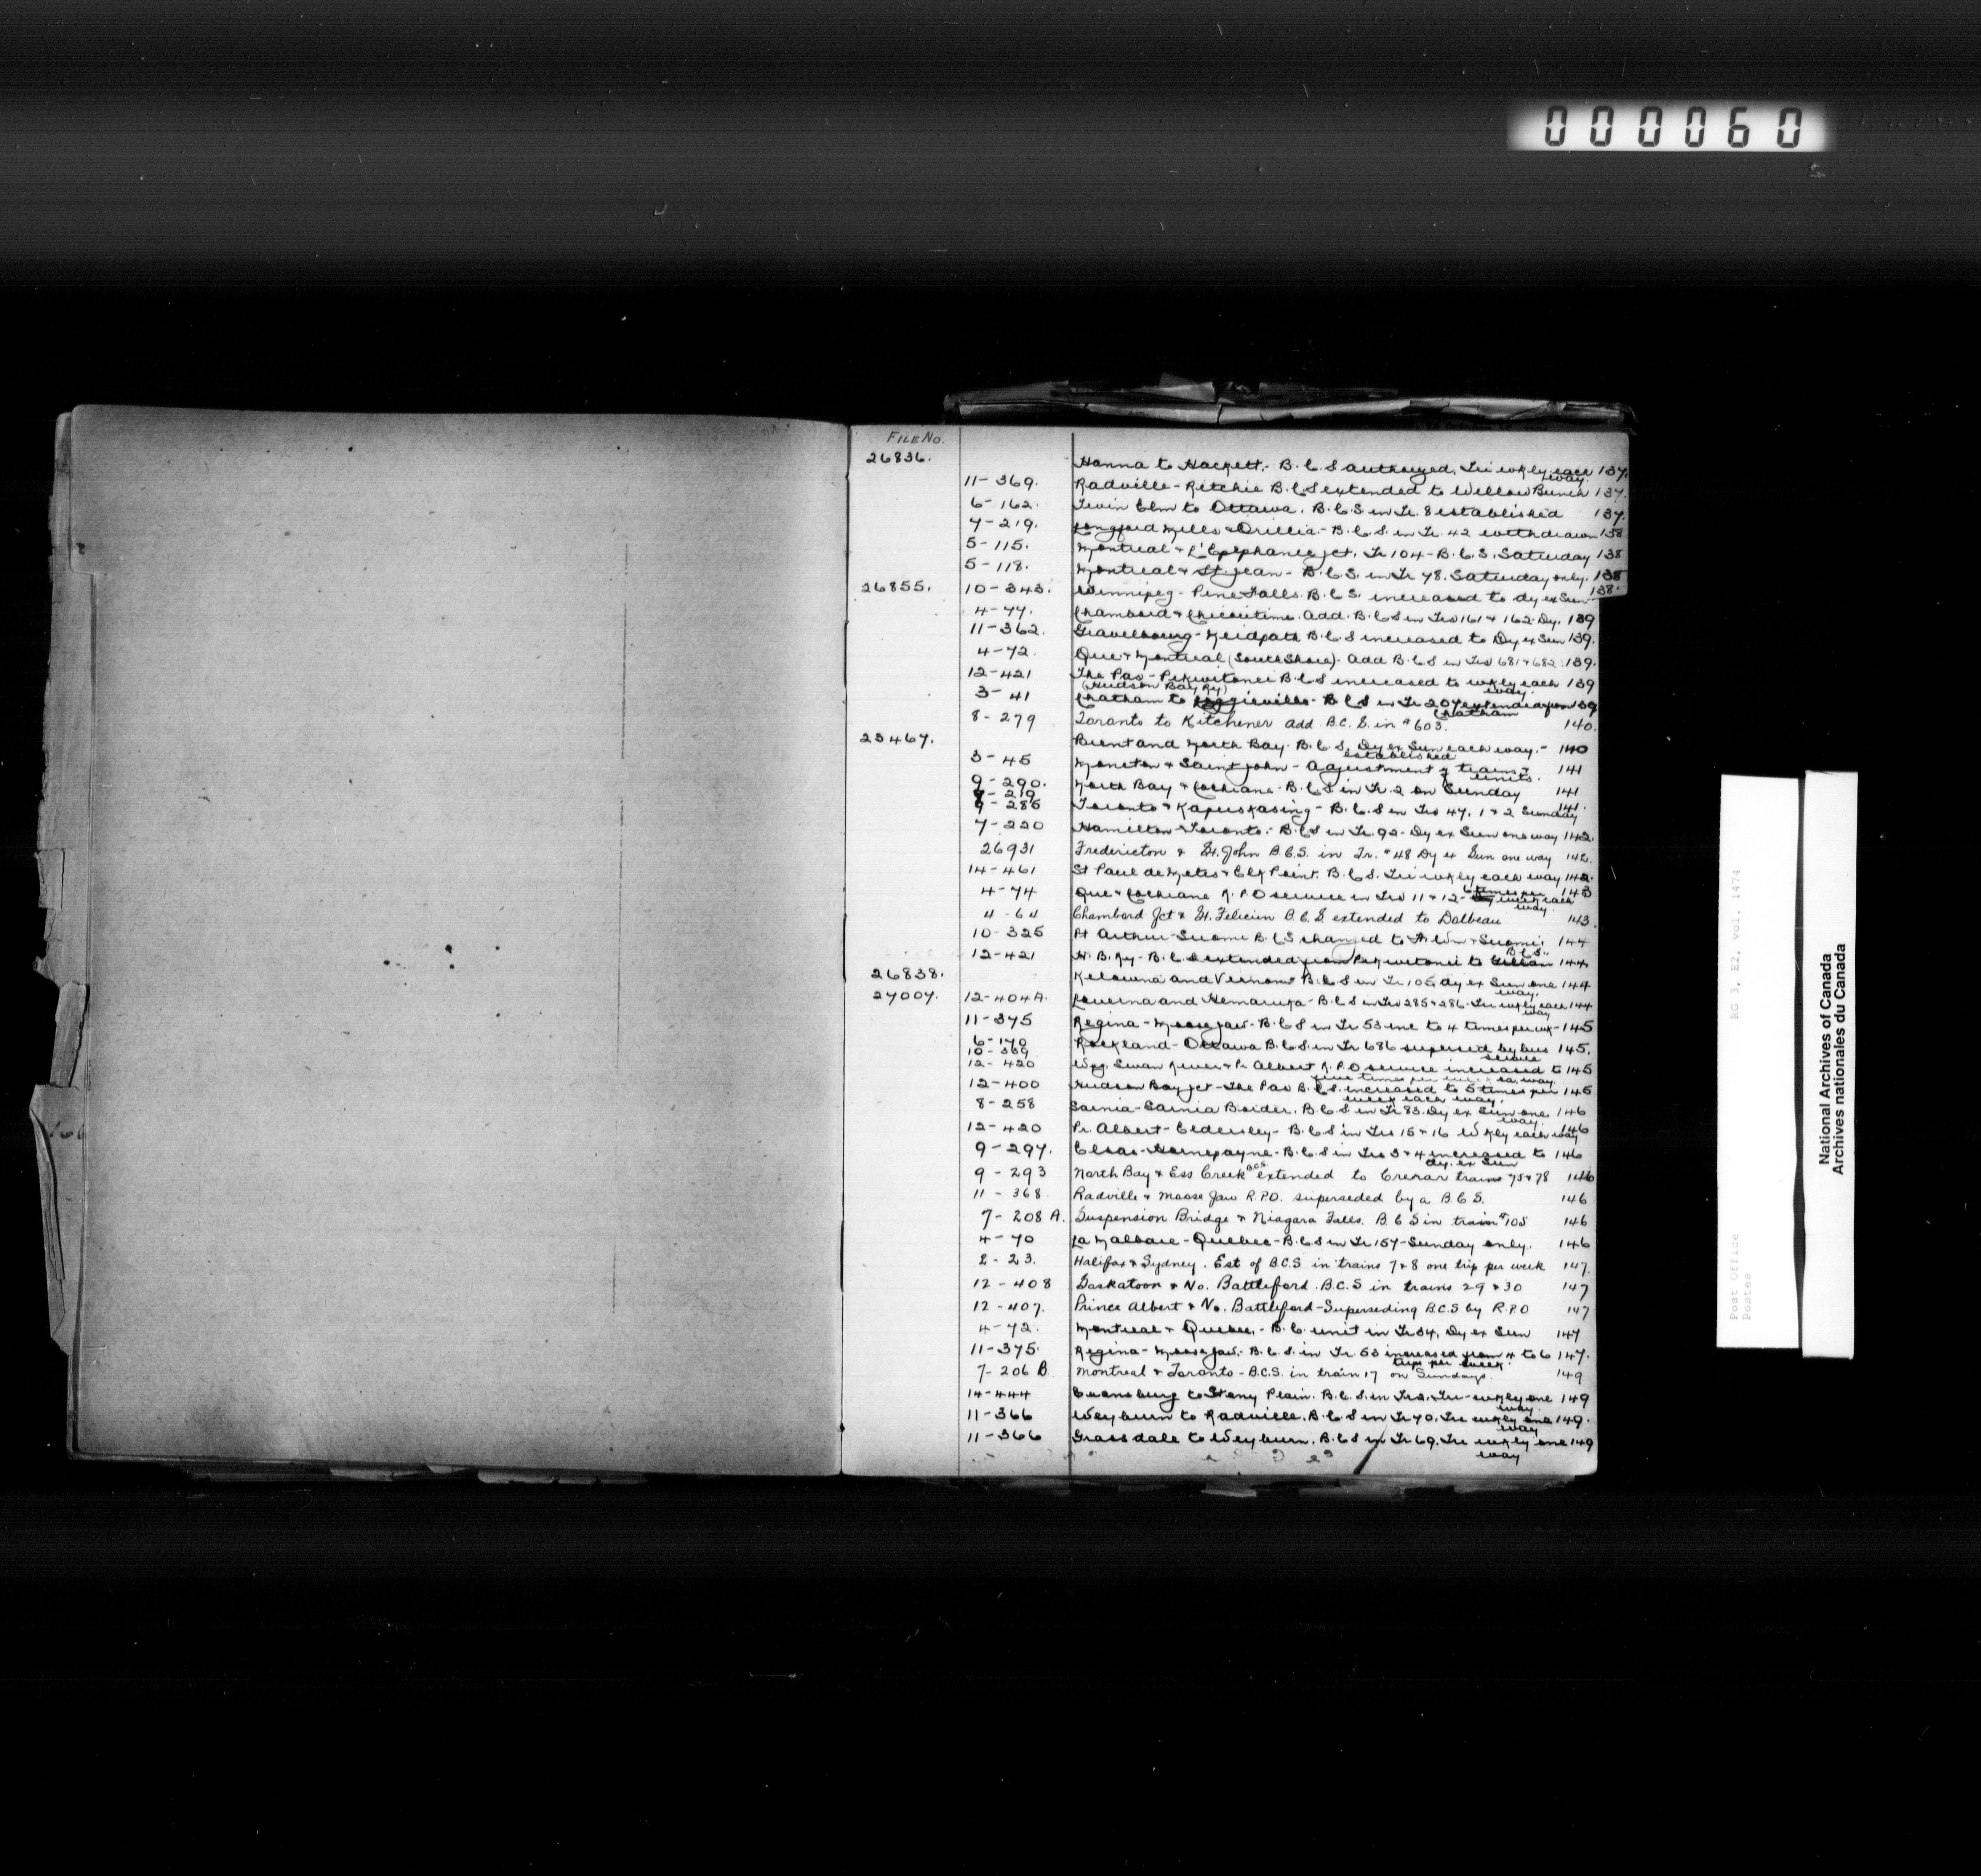 000060
FILE NO.
26836. Hanna to Hackett.- B.C.S authorized, Tri wkly each way. 137.
11-369. Radville-Ritchie B.C.S extended to Willow Bunch 137.
6-162. Twin Elm to Ottawa. B.C.S in Tr. 8 established 137.
7-219. Longford Mills & Orillia.- B.C.S. in Tr. 42 withdrawn 138
5-115. Montreal & L'Epiphanie Jct. Tr 104- B.C.S. Saturday 138
5-118. Montreal & St. Jean- B.C.S. in Tr 78. Saturday only. 138
26855. 10-343. Winnipeg- Pine Falls. B.C.S. increased to dy ex Sun 138.
4-77. Chambord & Chicoutimi. add. B.C.S in Trs 161 & 162. Dy. 139
11-362. Gravelbourg- Neidpath B.C.S increased to Dy ex Sun 139.
4-72. Que & Montreal (South Shore)- add B.C.S in Trs 681 & 682. 139.
12-421 The Pas- Pikwitonei B.C.S increased to wkly each way. 139
(Hudson Bay Ry)
3-41 Chatham to Loggieville- B.C.S in Tr 207 extended from Chatham 139
8-279 Toronto to Kitchener add. B.C.S. in #603. 140.
23467. Brent and North Bay. B.C.S. Dy ex Sun each way.- established 140
3-45 Moncton & Saint John- adjustment of trains & units. 141
9-290. North Bay & Cochrane- B.C.S in Tr. 2 on Sunday 141
7-219
9-285 Toronto & Kapuskasing- B.C.S in Trs 47, 1 & 2 Sunday 141.
7-220 Hamilton-Toronto:- B.C.S in Tr. 92- Dy ex Sun one way 142.
26931 Fredericton & St. John B.C.S. in Tr. #48 Dy ex Sun one way 142.
14-461 St Paul de Metis & Elk Point. B.C.S. Tri wkly each way 142.
4-74 Que & Cochrane R.P.O service in Trs 11 & 12- 6 times per week each way. 143
4-64 Chambord Jct & St. Felicien B.C.S. extended to Dolbeau 143.
10-325 Pt Arthur-Suomi B.C.S changed to Ft. Wm & Suomi B.C.S. 144
12-421 H.B. Ry- B.C.S extended from Pikwitonei to Gillam 144
26838. Kelowna and Vernon- B.C.S in Tr 105, dy ex Sun one way. 144
27007. 12-404A. Loverna and Hemaruka- B.C.S in Trs 285 & 286- Tri wkly each way 144
11-375 Regina- Moose Jaw- B.C.S in Tr 53 inc to 4 times per wk- 145
6-170 Rockland- Ottawa B.C.S. in Tr 686 supersed by bus service 145.
10-339
12-420 Wpg. Swan River & Pr Albert R.P.O service increased to five times per wk. ea. way. 145
12-400 Hudson Bay Jct- The Pas B.C.S. increased to 5 times per week each way. 145
8-258 Sarnia-Sarnia Border. B.C.S in Tr 83. Dy ex Sun one way. 146
12-420 Pr. Albert- Eldersley- B.C.S in Trs 15 & 16 Wkly each way 146
9-297. Elsas-Hornepayne- B.C.S in Trs 3 & 4 increased to dy. ex Sun 146
9-293 North Bay & Ess Creek B.C.S. extended to Crerar trains 75 & 78 146
11-368. Radville & Moose Jaw R.P.O. superseded by a B.C.S. 146
7-208 A. Suspension Bridge & Niagara Falls. B.C.S in train #105 146
4-70 La Malbaie- Quebec- B.C.S in Tr 157- Sunday only. 146
2-23. Halifax & Sydney. Est of B.C.S in trains 7 & 8 one trip per week 147.
12-408 Saskatoon & No. Battleford. B.C.S in trains 29 & 30 147
12-407. Prince Albert & No. Battleford-Superseding B.C.S by R.P.O 147
4-72. Montreal & Quebec.- B.C. unit in Tr 34, Dy ex Sun 147
11-375. Regina- Moose Jaw.- B.C.S. in Tr. 53 increased from 4 to 6 trips per week. 147.
7-206 B Montreal & Toronto- B.C.S. in train 17 on Sundays. 149
14-444 Evansburg to Stony Plain. B.C.S. in Tr 2. Tri-wkly one way. 149
11-366 Weyburn to Radville. B.C.S in Tr 70. Tri wkly one way 149.
11-366 Grassdale to Weyburn. B.C.S in Tr 69. Tri wkly one way 149
Post Office
Postes
RG 3, E2, vol. 1474
National Archives of Canada
Archives nationales du Canada